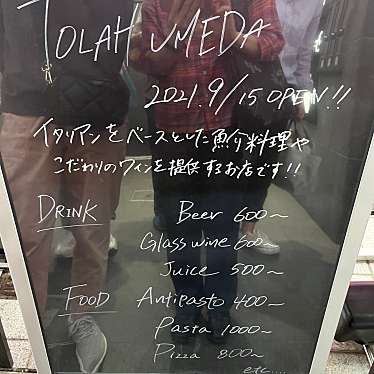 TOLAH UMEDA
2021.9/15 OPEN!!
イタリアンをベースとした魚介料理や
こだわりのワインを提供するお店です!!
DRINK Beer 600〜
Glass wine 600〜
Juice 500〜
FOOD Antipasto 400〜
Pasta 1000〜
Pizza 800〜
etc....